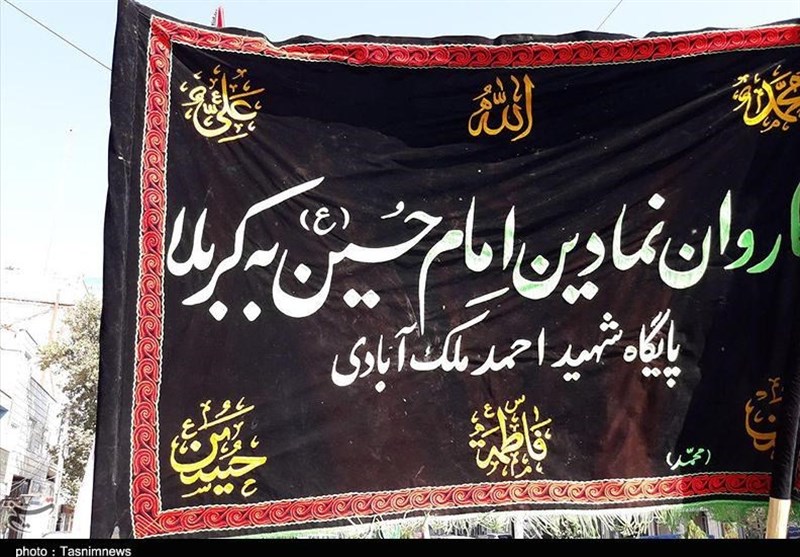 محمد الله علی
اروان نمادین امام حسین (ع) به کربلا
پایگاه شهید احمد ملک آبادی
فاطمة حسین
(محمد)
photo : Tasnimnews